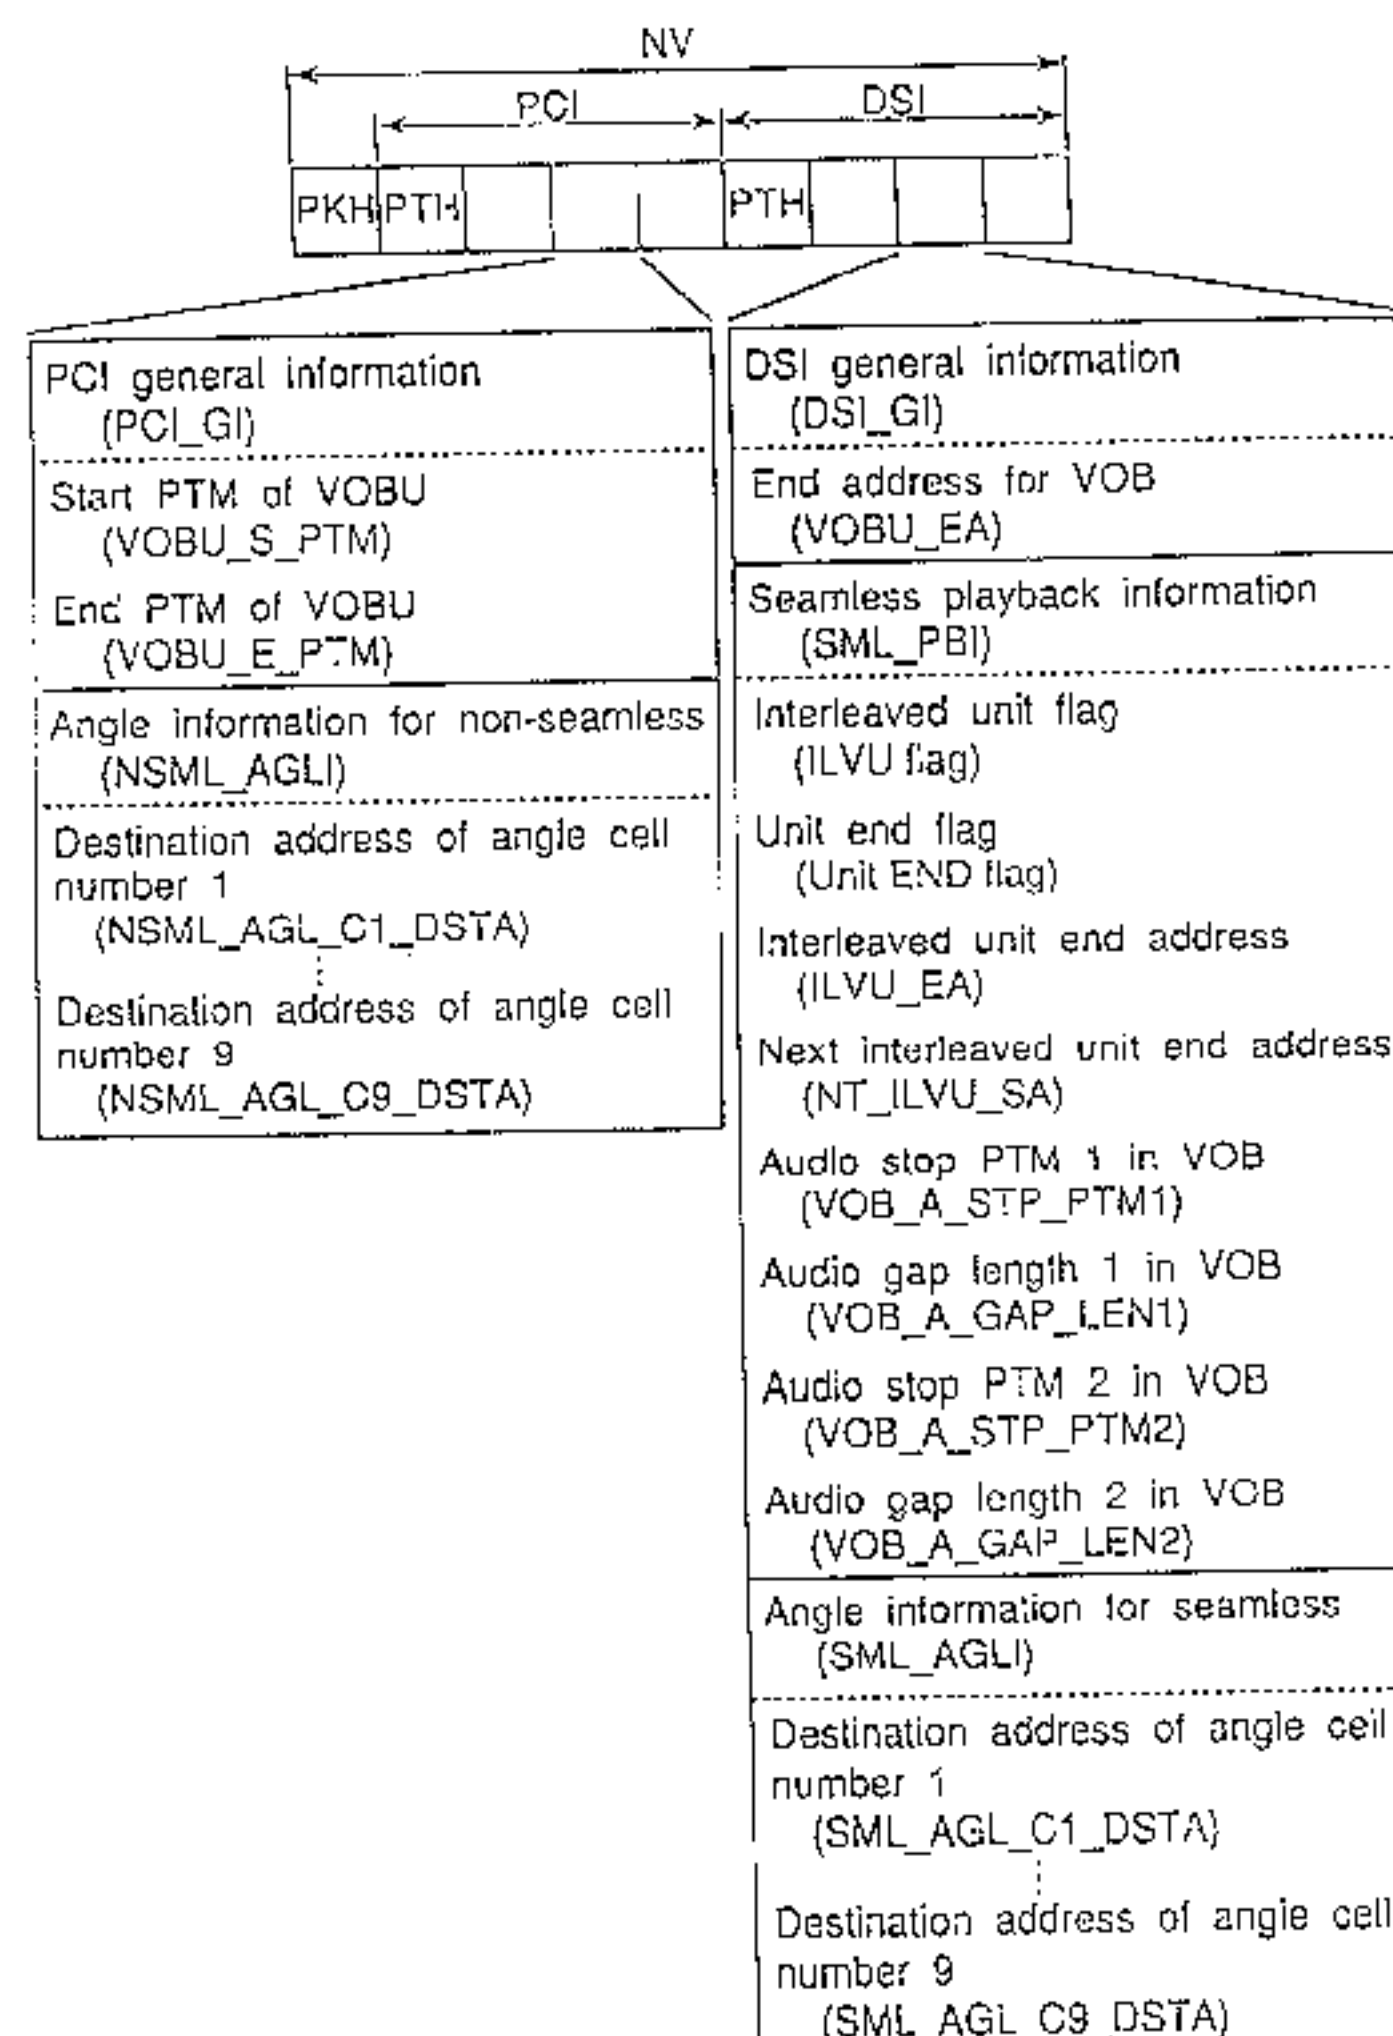 NV
PCI
DSI
PKH PTH PTH
PCI general information
(PCI_GI)
Start PTM of VOBU
(VOBU_S_PTM)
End PTM of VOBU
(VOBU_E_PTM)
Angle information for non-seamless
(NSML_AGLI)
Destination address of angle cell
number 1
(NSML_AGL_C1_DSTA)
Destination address of angle cell
number 9
(NSML_AGL_C9_DSTA)
DSI general information
(DSI_GI)
End address for VOB
(VOBU_EA)
Seamless playback information
(SML_PBI)
Interleaved unit flag
(ILVU flag)
Unit end flag
(Unit END flag)
Interleaved unit end address
(ILVU_EA)
Next interleaved unit end address
(NT_ILVU_SA)
Audio stop PTM 1 in VOB
(VOB_A_STP_PTM1)
Audio gap length 1 in VOB
(VOB_A_GAP_LEN1)
Audio stop PTM 2 in VOB
(VOB_A_STP_PTM2)
Audio gap length 2 in VOB
(VOB_A_GAP_LEN2)
Angle information for seamless
(SML_AGLI)
Destination address of angle cell
number 1
(SML_AGL_C1_DSTA)
Destination address of angle cell
number 9
(SML_AGL_C9_DSTA)